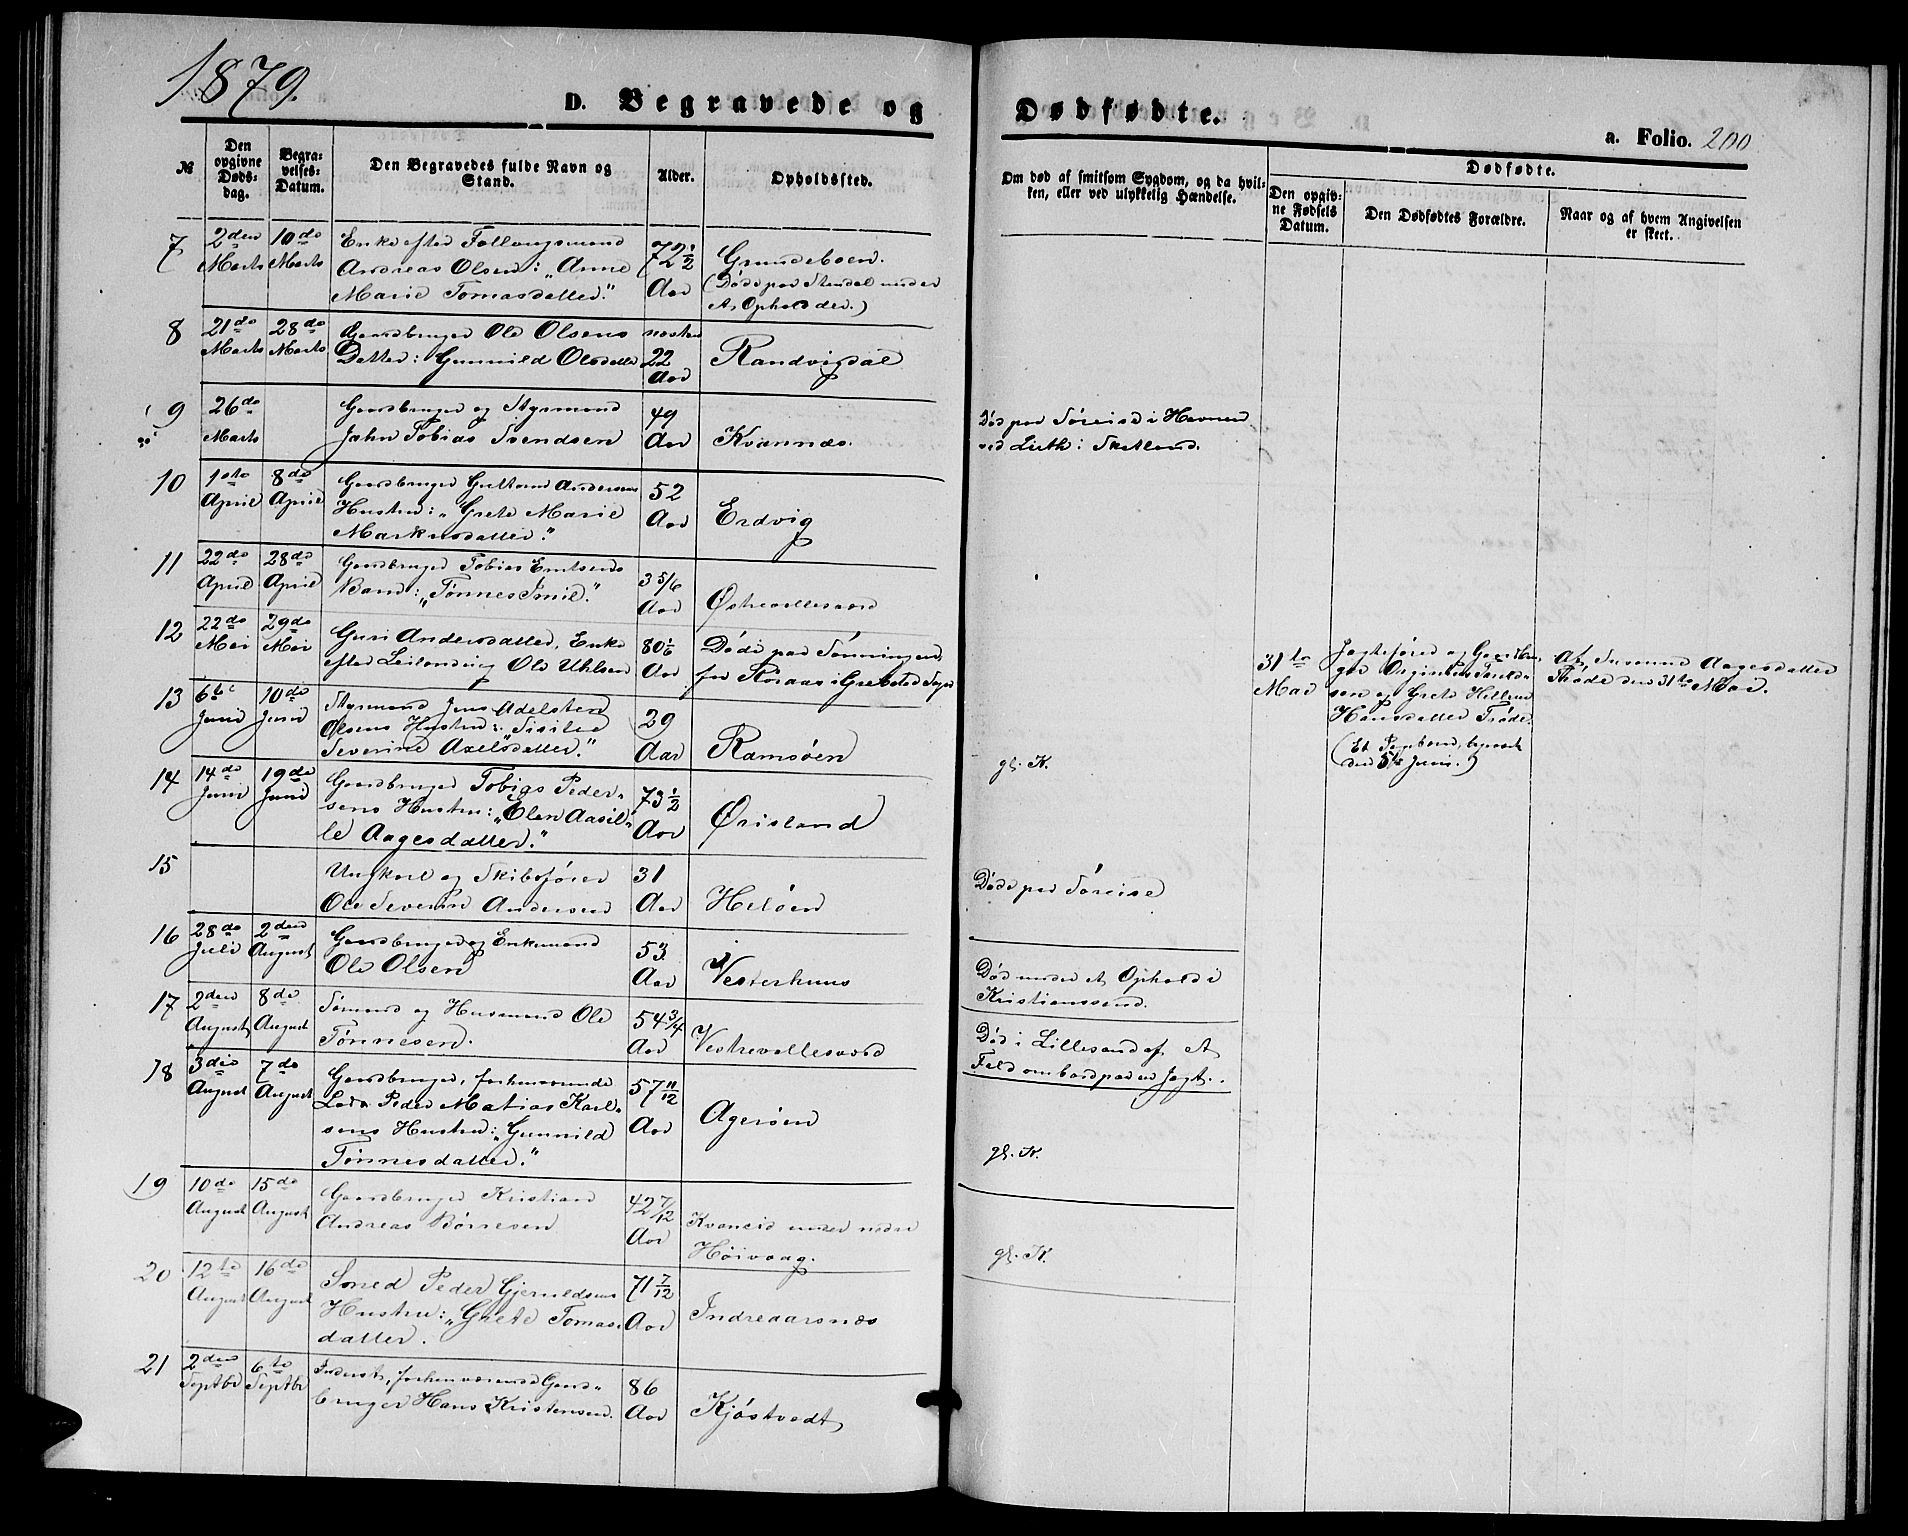 1879.
D. Begravede og Dødfødte.
a. Folio. 200
№
Den opgivne Døds-dag.
Begra-velses-Datum.
Den Begravedes fulde Navn og Stand.
Alder.
Opholdssted.
Om død af smitsom Sygdom, og da hvil-
ken, eller ved ulykkelig Hændelse.
Dødfødte.
Den opgiv-ne Fødsels Datum.
Den Dødfødtes Forældre.
Naar og af hvem Angivelsen er skeet.
7 2den Marts 10de Marts
Enke efter
Andreas Olsen: „Anne
Marie Tomasdatter.“
72½ Aar
Grundeboen.
(Døde paa Stendal under
et Ophold der.)
8 21de Marts 28de Marts
Gaardbruger Ole Olsens
Datter: Gunnild Olsdatter
næsten 22 Aar
Randvigdal
9 26de Marts
Gaardbruger og Styrmand
John Tobias Svendsen
49 Aar
Kvannæs.
Død paa Søreise i Havnen
ved Leith i Skotland.
10 1ste April 8de April
Gaardbruger Guttorm Andersens
Hustru: „Grete Marie
Markusdatter.“
52 Aar
Erdvig
11 22de April 28de April
Gaardbruger Tobias
Barn: „Tønnes Emil.“
3 5/6 Aar
Østrevallesværd
12 22de Mai 29de Mai
Guri Andersdatter, Enke
efter Leilænding Ole Uhlsen
80 1/6 Aar
Døde paa
for
31te Mai
Jagtefører og Gaardbru-
ger
sen og Grete Hellene
Hansdatter Trøde.
(Et Pigebarn, begravet
den 5te Juni.)
Af Susanne Aagesdatter
Trøde den 31te Mai.
13 6te Juni 10de Juni
Styrmand Jens Adelsten
Olsens Hustru: „Sisilie
Severine Axelsdatter.“
29 Aar
Ramsøen
gl. K.
14 14de Juni 19de Juni
Gaardbruger Tobias Peder-
sens Hustru: „Elen Aasil-
le Aagesdatter.“
73½ Aar
Ørisland
15
Ungkarl og Skibsfører
Ole Severin Andersen
31 Aar
Heløen
Døde paa Søreise
16 28de Juli 2den August
Gaardbruger og Enkemand
Ole Olsen
53 Aar
Vesterhuus
Død under et Ophold i
Kristianssand.
17 2den August 8de August
Sømand og Husmand Ole
Tønnesen.
54 3/4 Aar
Vestrevallesværd
Død i Lillesand af et
Fald ombord paa en Jagt.
18 3die August 7de August
Gaardbruger, forhenværende
Lods Peder Matias Karl-
sens Hustru: „Gunnild
Tønnesdatter.“
57 11/12 Aar
Agerøen
gl. K.
19 10de August 15de August
Gaardbruger Kristian
Andreas Børresen
42 7/12 Aar
Kvaneid under nedre
Høivaag.
gl. K.
20 12te August 16de August
Smed Peder Gjeruldsens
Hustru: „Grete Tomas-
datter.
71 7/12 Aar
Indreaarsnæs
21 2den Septbr 6te Septbr
Inderst, forhenværende Gaard-
bruger Hans Kristensen.
86 Aar
Kjøstvedt